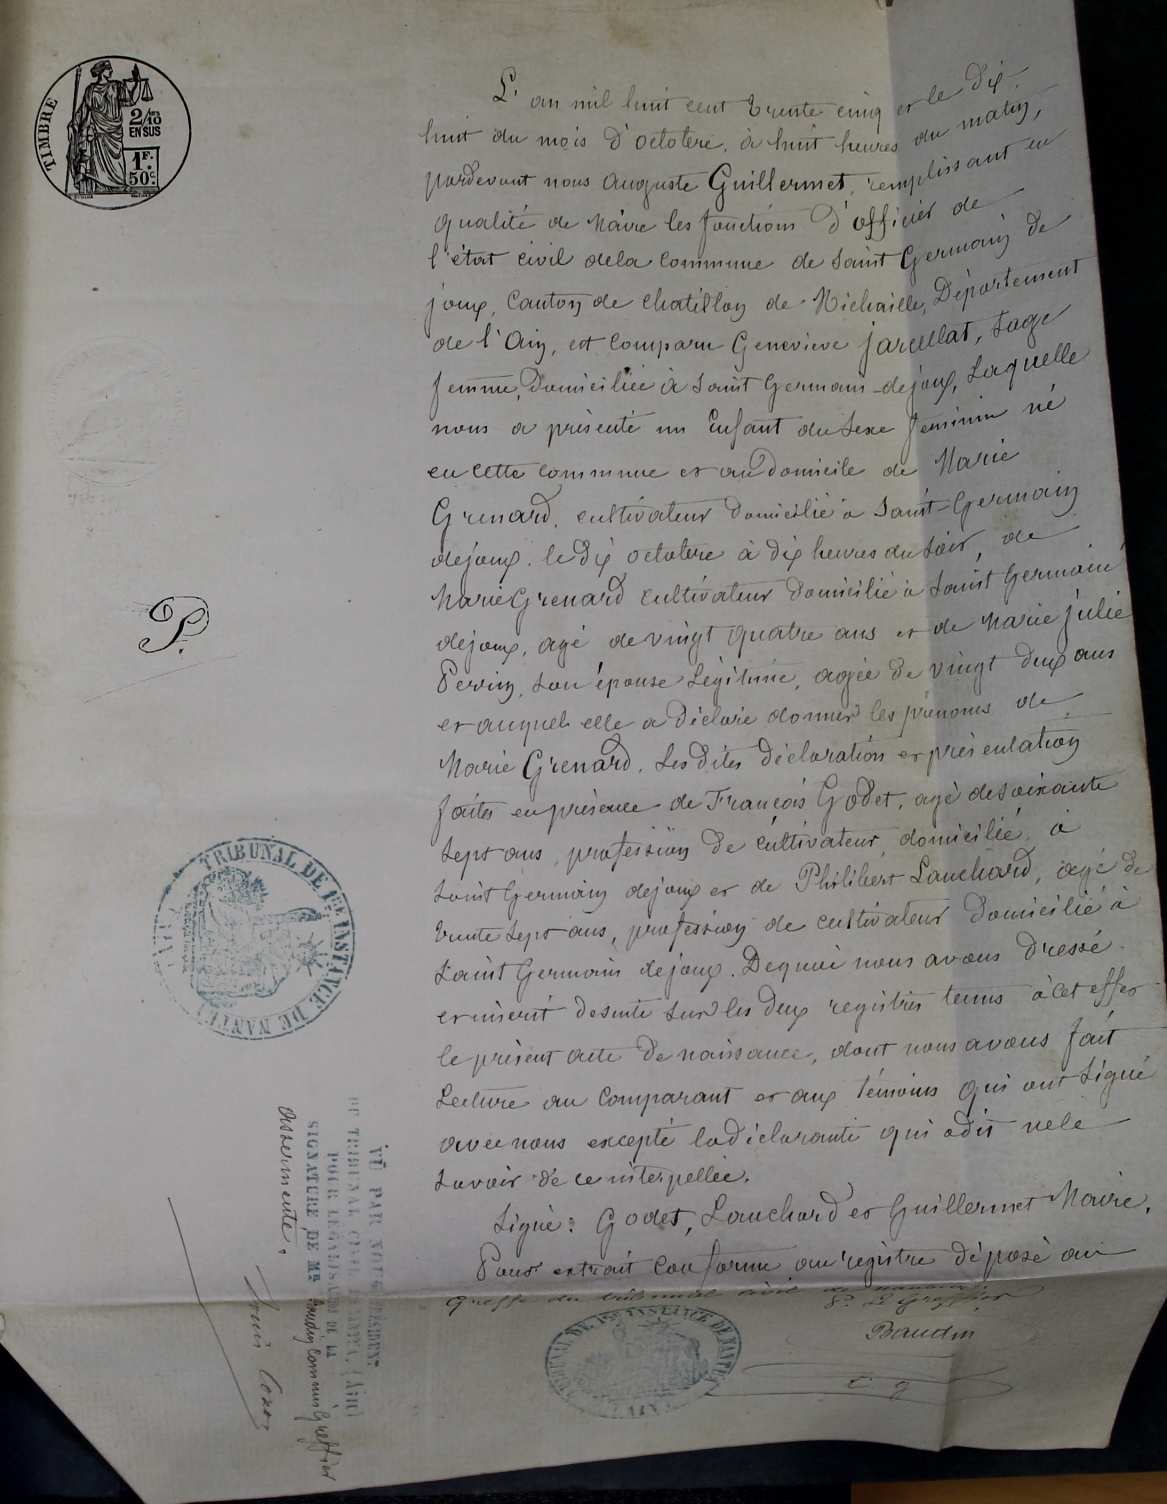 TIMBRE
2/10
EN SUS
1F.
50c
L'an mil huit cent trente cinq et le dix
huit du mois d'octobre, à huit heures du matin,
pardevant nous Auguste Guillermet, remplissant en
qualité de Maire les fonctions d'officier de
l'état civil dela commune de Saint Germain de
joux, Canton de Chatillon de Michaille, Département
de l'Ain, est comparu Geneviève jarullat, Sage
femme, Domiciliée à Saint Germain dejoux, Laquelle
nous a présenté un Enfant du Sexe féminin né
en cette commune et au Domicile de Marie
Grenard, cultivateur domicilié à Saint-Germain
dejoux, le dix octobre à dix heures du Soir, de
Marie Grenard cultivateur domicilié à Saint Germain
dejoux, agé de vingt quatre ans et de Marie julie
Perrin, son épouse Légitime, agée de vingt deux ans
et auquel elle a Déclaré donner les prénoms de
Marie Grenard. Les dites déclaration et présentation
faites en présence de François Godet, agé de soixante
sept ans, profession de cultivateur, domicilié à
Saint Germain dejoux et de Philibert Lauchard, agé de
trente sept ans, profession de cultivateur Domicilié à
Saint Germain dejoux. Dequoi nous avons dressé
et inscrit desuite sur les deux registres tenus à cet effet
le présent acte de naissance, dont nous avons fait
Lecture au Comparant et aux témoins qui ont Signé
avec nous excepté la déclarante qui a dit ne le
Savoir de ce interpellée.
Signé: Godet, Lauchard et Guillermet Maire.
Pour extrait conforme au registre déposé au
Greffe du tribunal civil de
Pr. Le Greffier
Baudin
P.
TRIBUNAL DE 1re INSTANCE DE NANTUA
(AIN)
VU PAR NOUS PRÉSIDENT
DU TRIBUNAL CIVIL DE NANTUA, (AIN)
POUR LÉGALISATION DE LA
SIGNATURE DE Mr Baudin Commis Greffier
assermenté.
TRIBUNAL DE 1re INSTANCE DE NANTUA
(AIN)